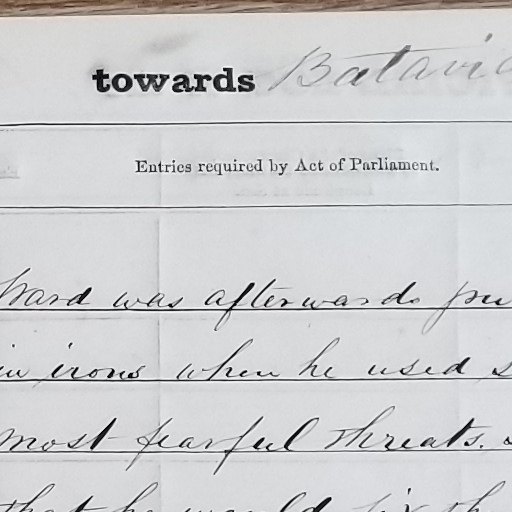 towards Batavia
Entries required by Act of Parliament.
Ward was afterwards put
in irons when he used
most fearful threats.
that he would fix the